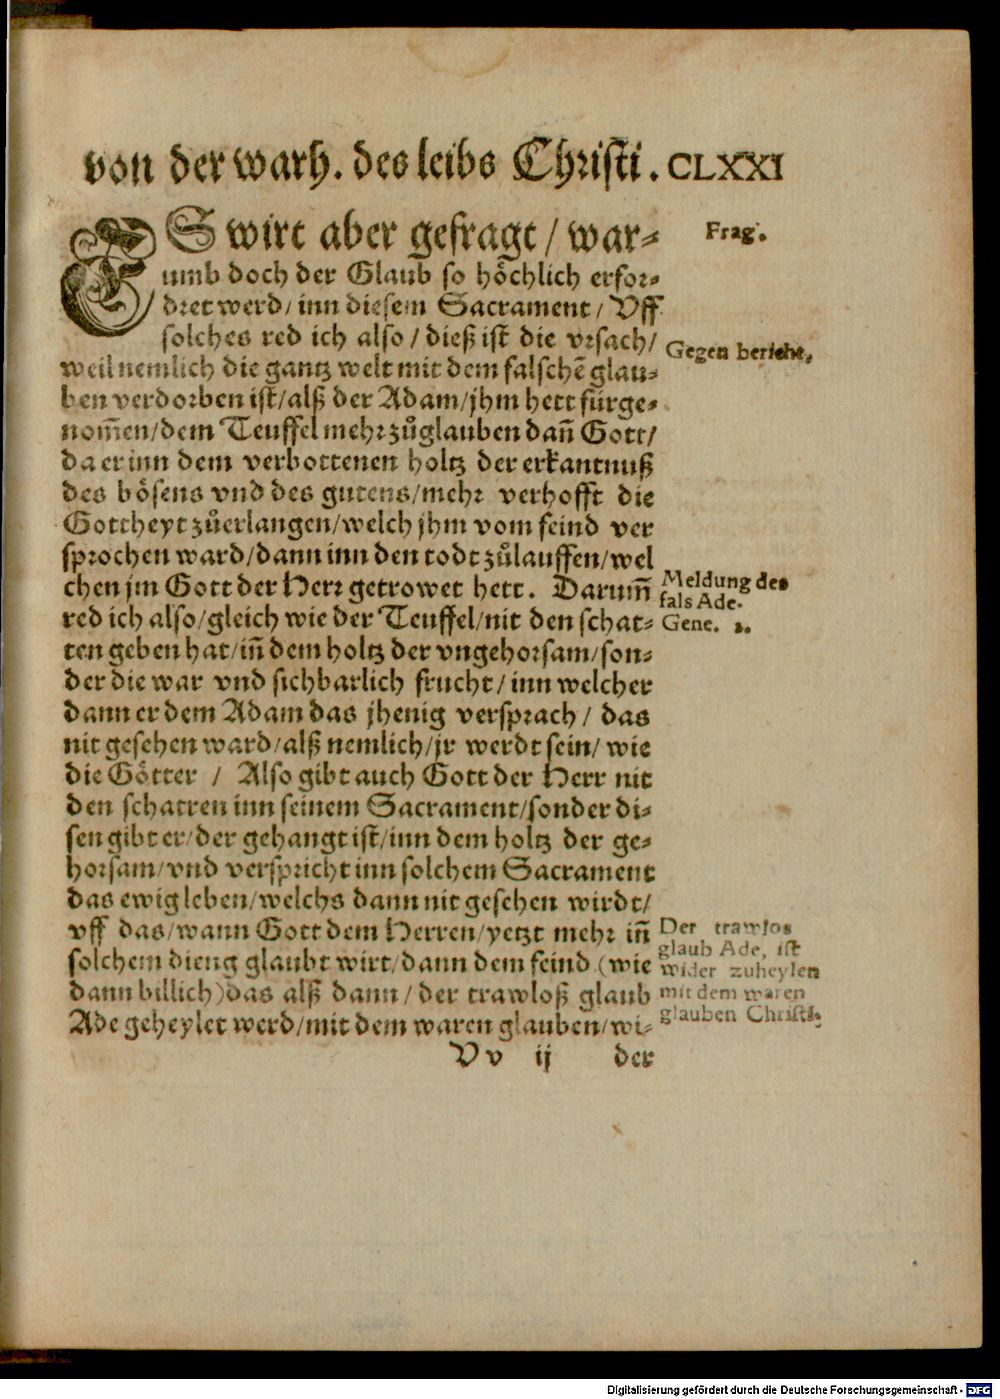 von der warh. des leibs Christi. CLXXI
ES wirt aber gefragt / war⸗
Frag.
umb doch der Glaub so höchlich erfor⸗
dret werd / inn diesem Sacrament / Vff
solches red ich also / dieß ist die vrsach /
Gegen bericht.
weil nemlich die gantz welt mit dem falschē glau⸗
ben verdorben ist / alß der Adam / jhm hett fürge⸗
nom̃en / dem Teuffel mehr zůglauben dañ Gott /
da er inn dem verbottenen holtz der erkantnuß
des bösens vnd des gutens / mehr verhofft die
Gottheyt zůerlangen / welch jhm vom feind ver
sprochen ward / dann inn den todt zůlauffen / wel
chen jm Gott der Herr getrowet hett. Darum̃
Meldung des
fals Ade.
red ich also / gleich wie der Teuffel / nit den schat⸗
Gene. 3.
ten geben hat / iñ dem holtz der vngehorsam / son⸗
der die war vnd sichbarlich frucht / inn welcher
dann er dem Adam das jhenig versprach / das
nit gesehen ward / alß nemlich / jr werdt sein / wie
die Götter / Also gibt auch Gott der Herr nit
den schatten inn seinem Sacrament / sonder di⸗
sen gibt er / der gehangt ist / inn dem holtz der ge⸗
horsam / vnd verspricht inn solchem Sacrament
das ewig leben / welchs dann nit gesehen wirdt /
vff das / wann Gott dem Herren / yetzt mehr iñ
Der trawlos
glaub Ade, ist
solchem dieng glaubt wirt / dann dem feind (wie
wider zuheylen
dann billich) das alß dann / der trawloß glaub
mit dem waren
glauben Christi.
Ade geheylet werd / mit dem waren glauben / wi⸗
Vv ij der
Digitalisierung gefördert durch die Deutsche Forschungsgemeinschaft - DFG